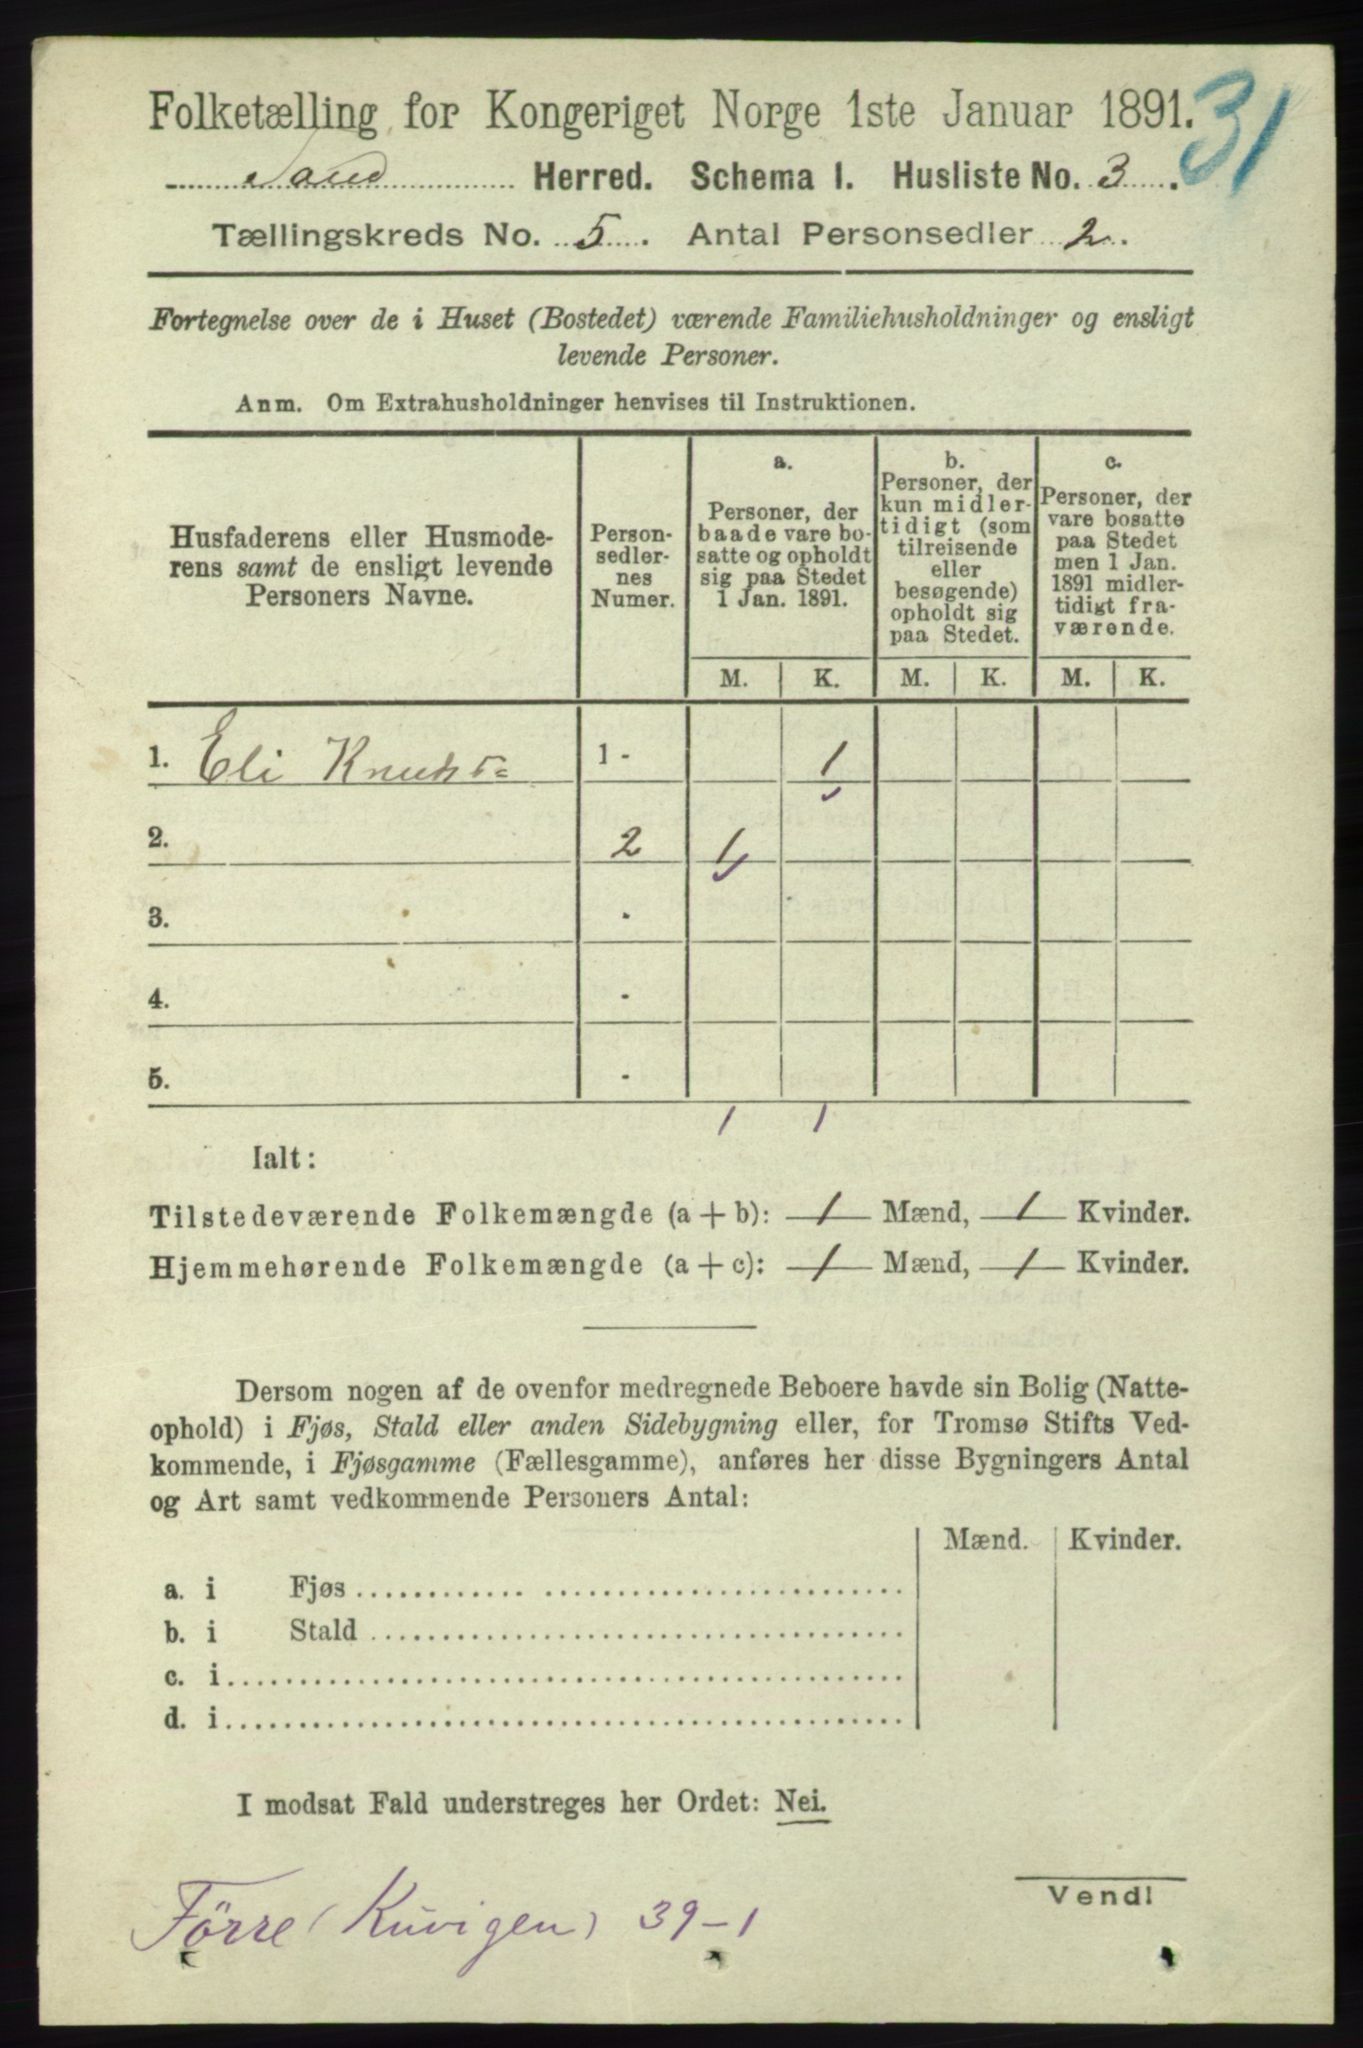 Folketælling for Kongeriget Norge 1ste Januar 1891.
31
Sand Herred. Schema I. Husliste No. 3.
Tællingskreds No. 5. Antal Personsedler 2.
Fortegnelse over de i Huset (Bostedet) værende Familiehusholdninger og ensligt
levende Personer.
Anm. Om Extrahusholdninger henvises til Instruktionen.
Husfaderens eller Husmode-
rens samt de ensligt levende
Personers Navne.
Person-
sedler-
nes
Numer.
a.
Personer, der
baade vare bo-
satte og opholdt
sig paa Stedet
1 Jan. 1891.
b.
Personer, der
kun midler-
tidigt (som
tilreisende
eller
besøgende)
opholdt sig
paa Stedet.
c.
Personer, der
vare bosatte
paa Stedet
men 1 Jan.
1891 midler-
tidigt fra-
værende.
M. K. M. K. M. K.
1. Eli 1 - 1
2. 2 1
3. -
4. -
5. -
1 1
Ialt:
Tilstedeværende Folkemængde (a + b): 1 Mænd, 1 Kvinder.
Hjemmehørende Folkemængde (a + c): 1 Mænd, 1 Kvinder.
Dersom nogen af de ovenfor medregnede Beboere havde sin Bolig (Natte-
ophold) i Fjøs, Stald eller anden Sidebygning eller, for Tromsø Stifts Ved-
kommende, i Fjøsgamme (Fællesgamme), anføres her disse Bygningers Antal
og Art samt vedkommende Personers Antal:
Mænd. Kvinder.
a. i Fjøs
b. i Stald
c. i
d. i
I modsat Fald understreges her Ordet: Nei.
Vend!
Förre (Kuvigen) 39-1